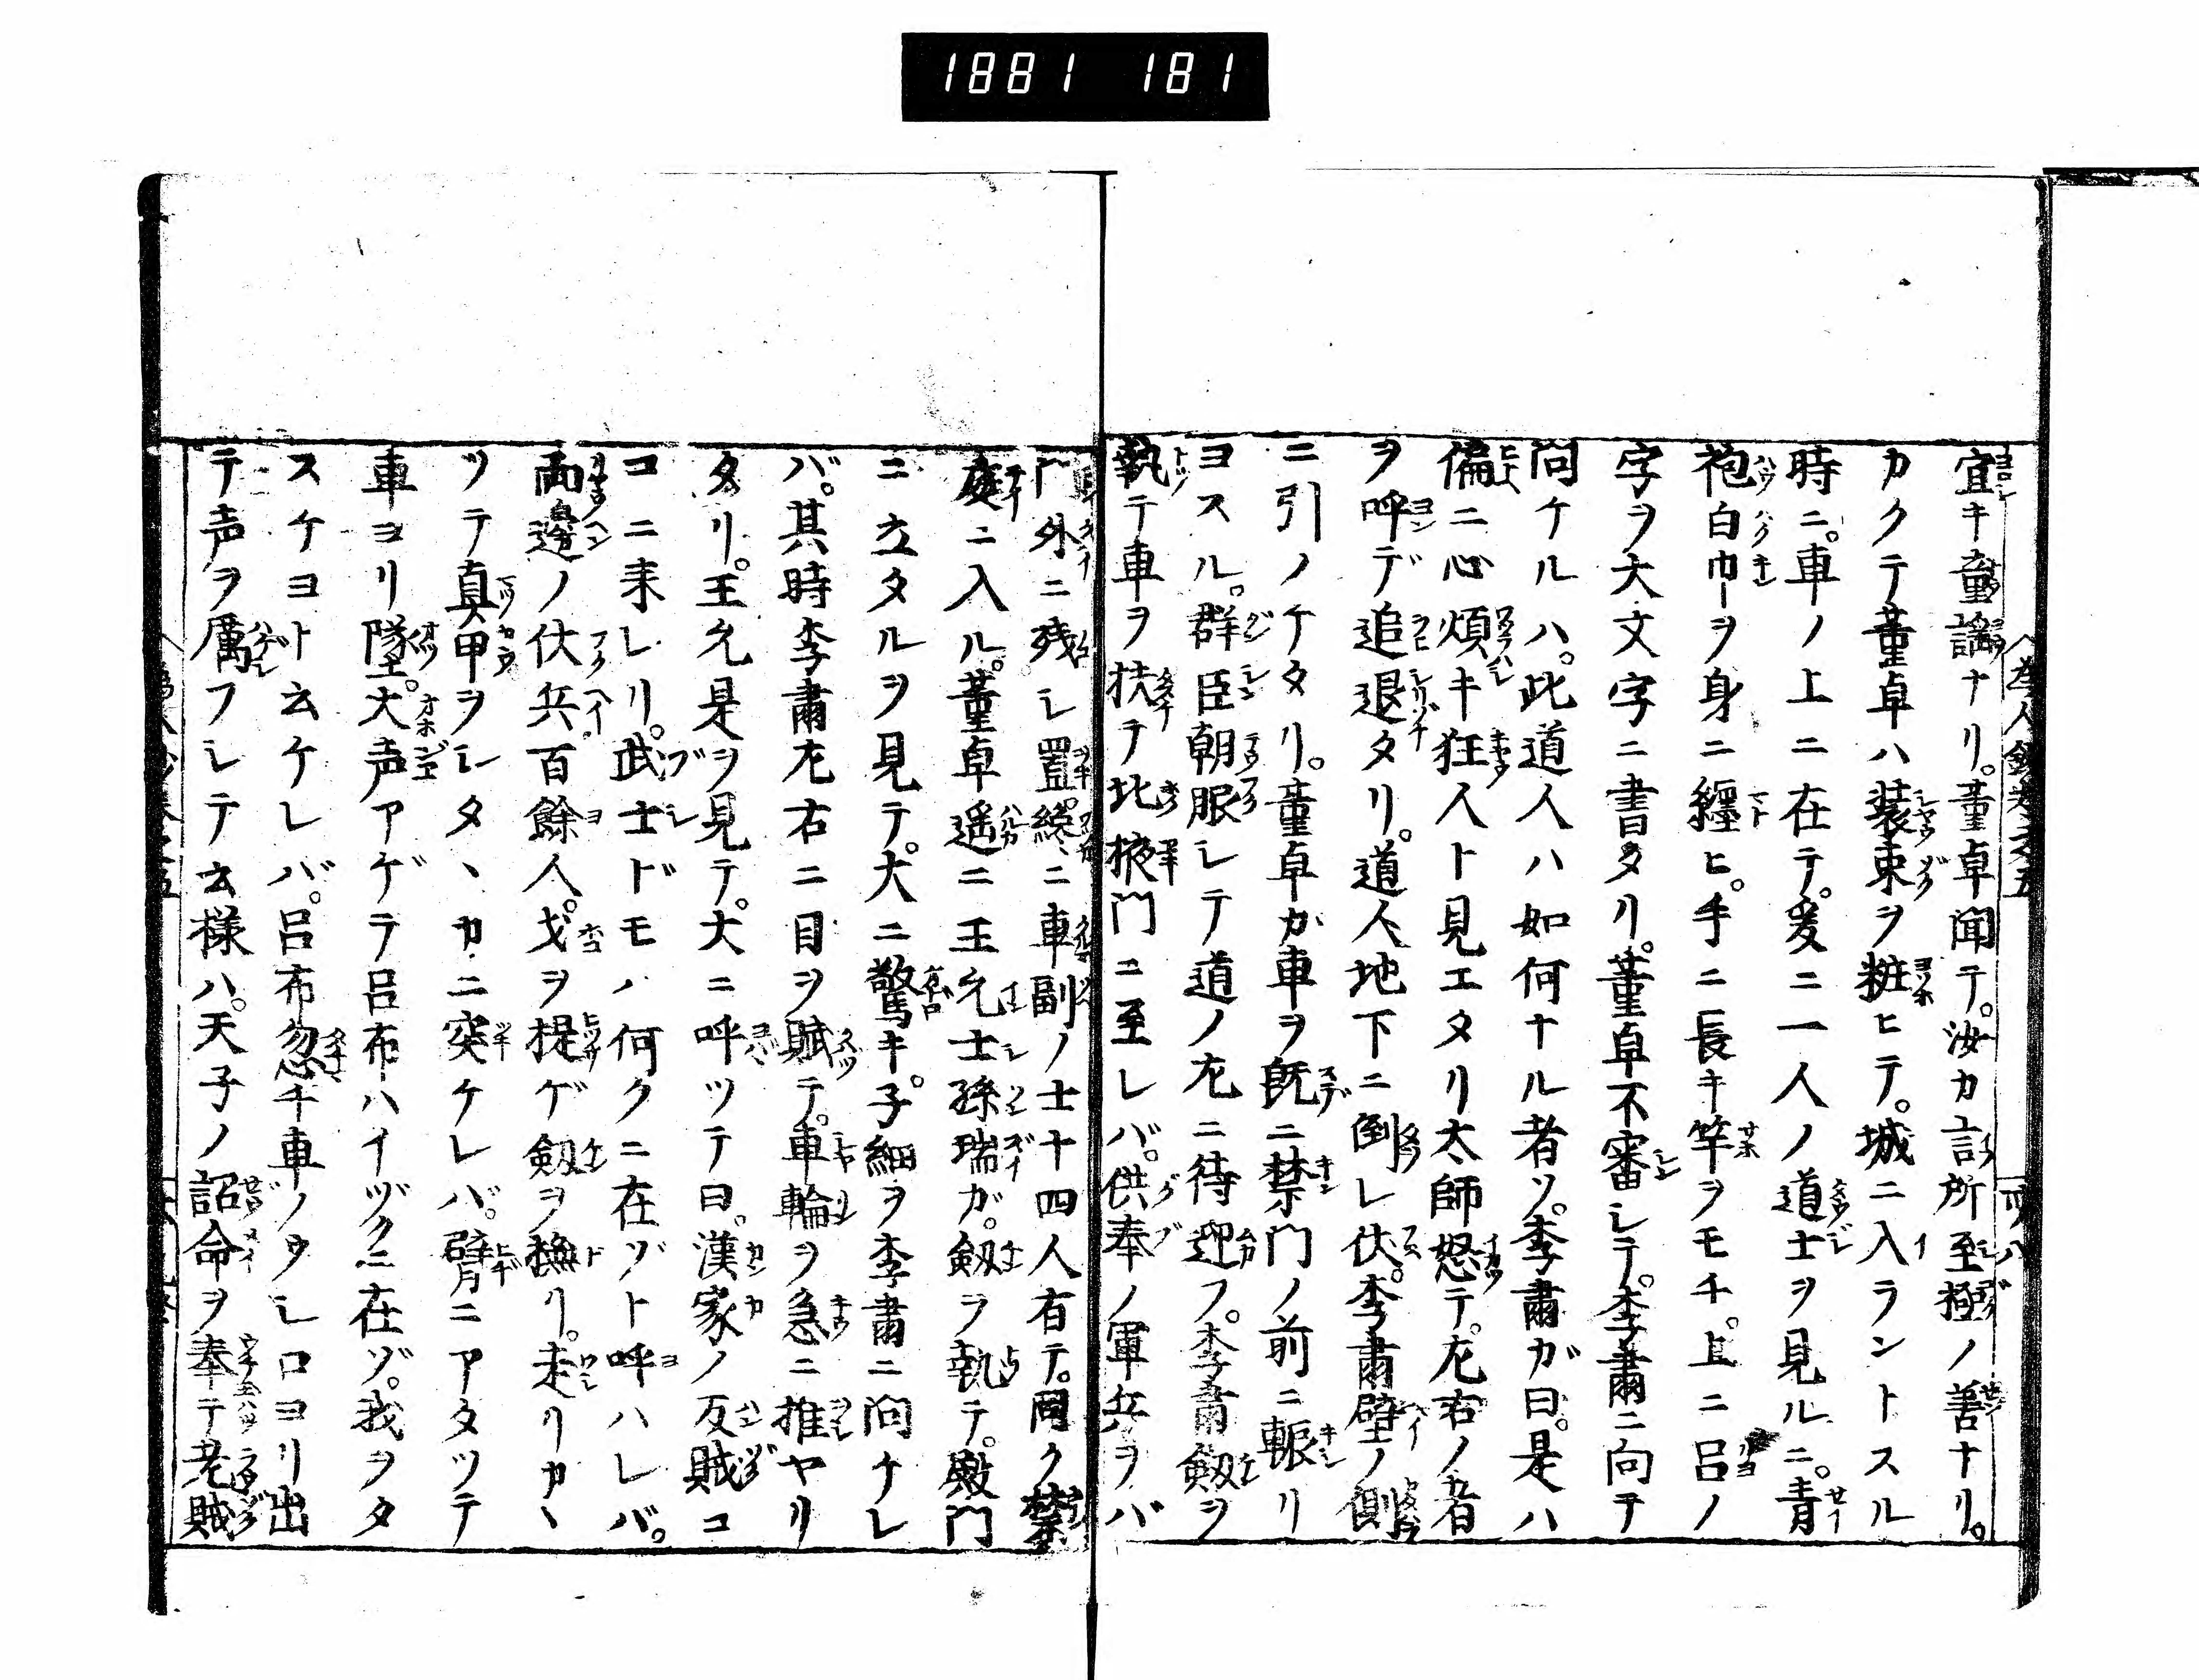 1881 181
宜キ童謡ナリ。董卓聞テ。汝カ言所至極ノ善ナリ。
カクテ董卓ハ装束ヲ粧ヒテ。城ニ入ラントスル
時ニ。車ノ上ニ在テ。爰ニ一人ノ道士ヲ見ルニ。青
袍白巾ヲ身ニ纒ヒ。手ニ長キ竿ヲモチ。上ニ呂ノ
字ヲ大文字ニ書タリ。董卓不審シテ。李肅ニ向テ
問ケルハ。此道人ハ如何ナル者ソ。李肅ガ曰。是ハ
偏ニ心煩キ狂人ト見エタリ太師怒テ。左右ノ者
ヲ呼デ追退タリ。道人地下ニ倒レ伏。李肅壁ノ側
ニ引ノケタリ。董卓カ車ヲ既ニ禁門ノ前ニ輾リ
ヨスル。群臣朝服シテ道ノ左ニ待迎フ。李肅劔ヲ
執テ車ヲ扶テ北掖門ニ至レバ。供奉ノ軍兵ヲバ
門外ニ残シ置。終ニ車副ノ士十四人有テ。同ク禁
庭ニ入ル。董卓遥ニ王允士孫瑞ガ。劔ヲ執テ。殿門
ニ立タルヲ見テ。大ニ驚キ。子細ヲ李肅ニ問ケレ
バ。其時李肅左右ニ目ヲ賦テ。車輪ヲ急ニ推ヤリ
タリ。王允是ヲ見テ。大ニ呼ツテ曰。漢家ノ反賊コ
コニ来レリ。武士ドモハ何クニ在ゾト呼ハレバ。
両邊ノ伏兵百餘人。戈ヲ提ゲ劔ヲ執リ。走リカヽ
ツテ真甲ヲシタヽカニ突ケレバ。臂ニアタツテ
車ヨリ墜。大声アゲテ呂布ハイヅクニ在ゾ。我ヲタ
スケヨト云ケレバ。呂布忽チ車ノウシロヨリ出
テ声ヲ厲フシテ云様ハ。天子ノ詔命ヲ奉テ老賊